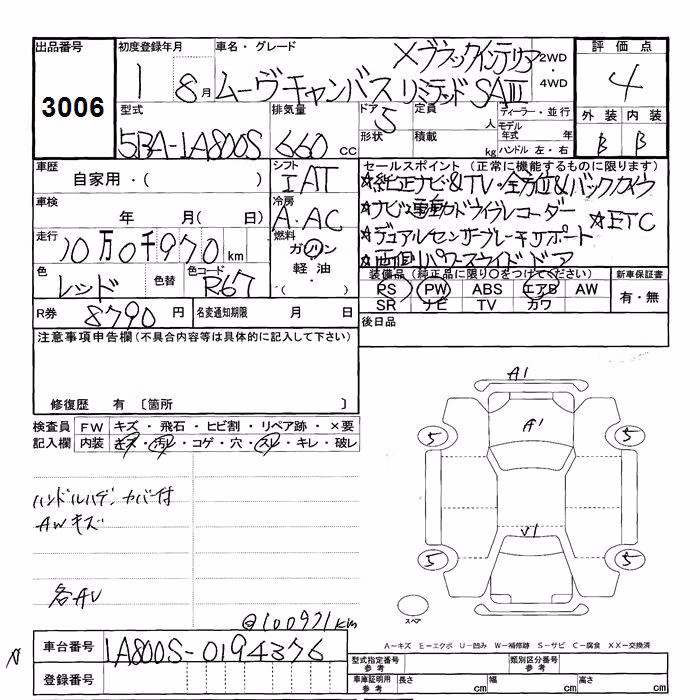 出品番号 初度登録年月 車名・グレード 評価点
3006
1 8月 ムーヴキャンバス ×ブラックインテリア リミテッド SAⅢ 2WD・4WD 4
型式 排気量 ドア 5 定員 人 ディーラー・並行 外装 内装
5BA-1A800S 660 cc 形状 積載 kg モデル年式 年 ハンドル 左・右 B B
車歴 自家用・( ) シフト IAT
セールスポイント (正常に機能するものに限ります)
☆純正ナビ&TV・全方位&バックカメラ
車検 年 月(日) 冷房 A・AC
☆ナビ連動ドライブレコーダー ☆ETC
走行 10万0千970km 燃料 ガソリン 軽油・( )
☆デュアルセンサーブレーキサポート
☆両側パワースライドドア
色 レッド 色替 色コード R67
装備品 (純正品に限り○をつけてください) 新車保証書
PS PW ABS エアB AW 有・無
SR ナビ TV カワ
R券 8790円 名変通知期限 月 日
後日品
注意事項申告欄 (不具合内容等は具体的に記入して下さい)
修復歴 有 〔箇所 〕
検査員 FW キズ・飛石・ヒビ割・リペア跡・×要
記入欄 内装 キズ・汚レ・コゲ・穴・スレ・キレ・破レ
A1
A1
5 5
ハンドルハデ、カバー付
AWキズ
V1
5 5
各AU
スペア
@100971km
A−キズ E−エクボ U−凹み W−補修跡 S−サビ C−腐食 XX−交換済
車台番号 1A800S-0194376
型式指定番号 参考 類別区分番号 参考
登録番号
車庫証明用 参考 長さ cm 幅 cm 高さ cm